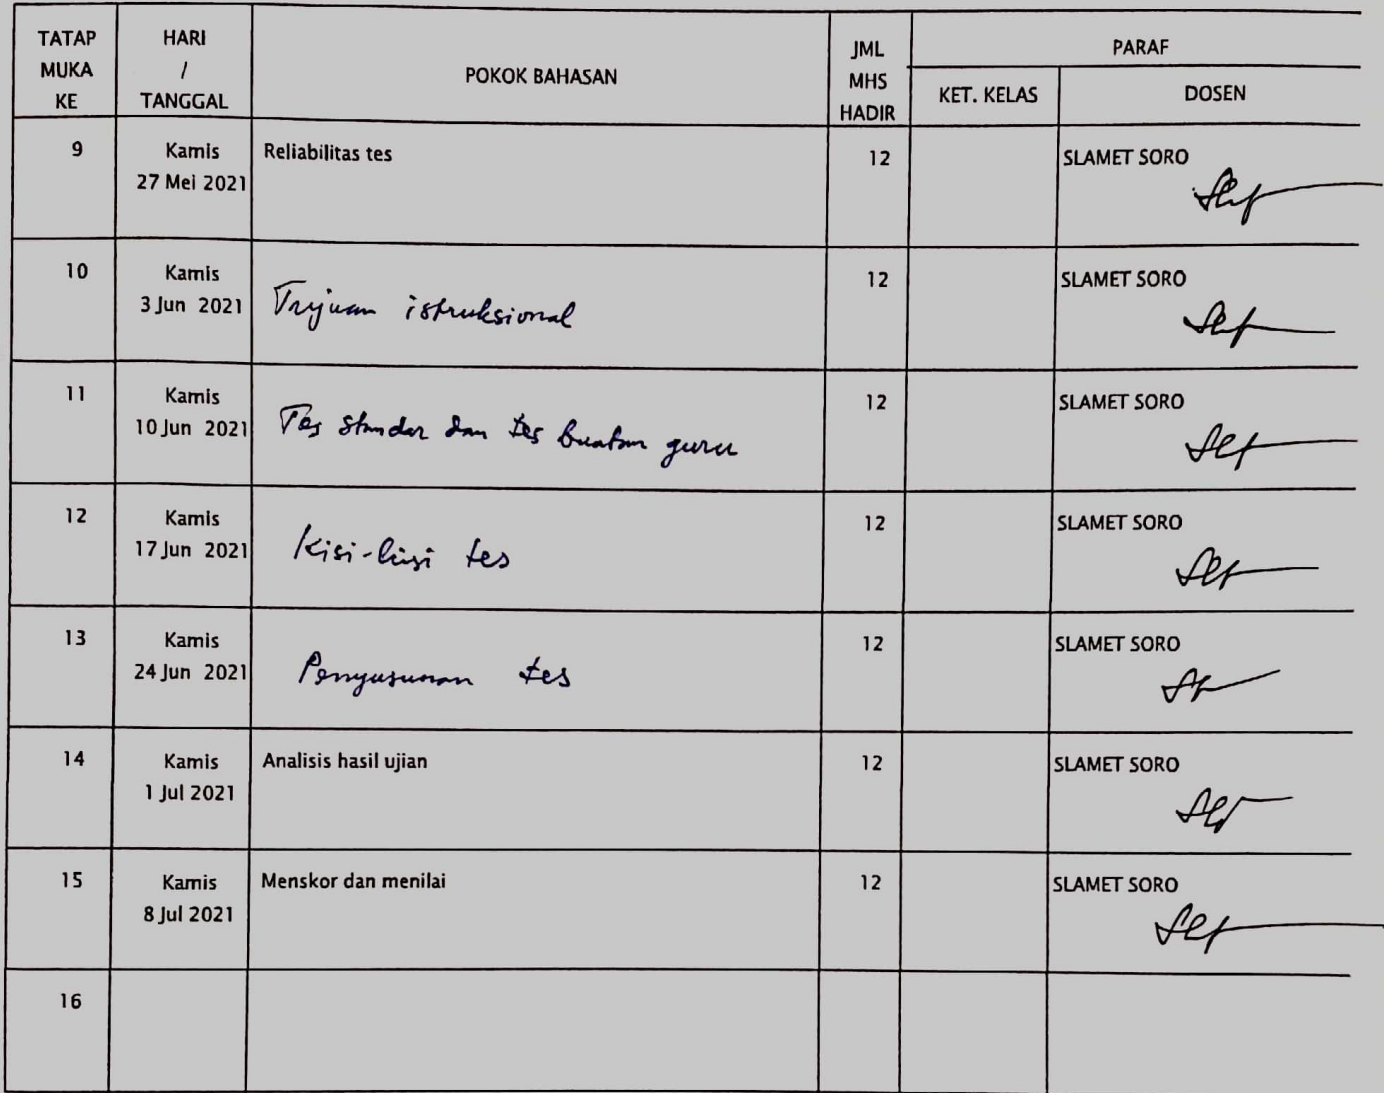 TATAP MUKA KE | HARI / TANGGAL | POKOK BAHASAN | JML MHS HADIR | PARAF
KET. KELAS | DOSEN
9 | Kamis 27 Mei 2021 | Reliabilitas tes | 12 | SLAMET SORO
10 | Kamis 3 Jun 2021 | Tujuan istruksional | 12 | SLAMET SORO
11 | Kamis 10 Jun 2021 | Tes standar dan tes buatan guru | 12 | SLAMET SORO
12 | Kamis 17 Jun 2021 | Kisi-kisi tes | 12 | SLAMET SORO
13 | Kamis 24 Jun 2021 | Penyusunan tes | 12 | SLAMET SORO
14 | Kamis 1 Jul 2021 | Analisis hasil ujian | 12 | SLAMET SORO
15 | Kamis 8 Jul 2021 | Menskor dan menilai | 12 | SLAMET SORO
16